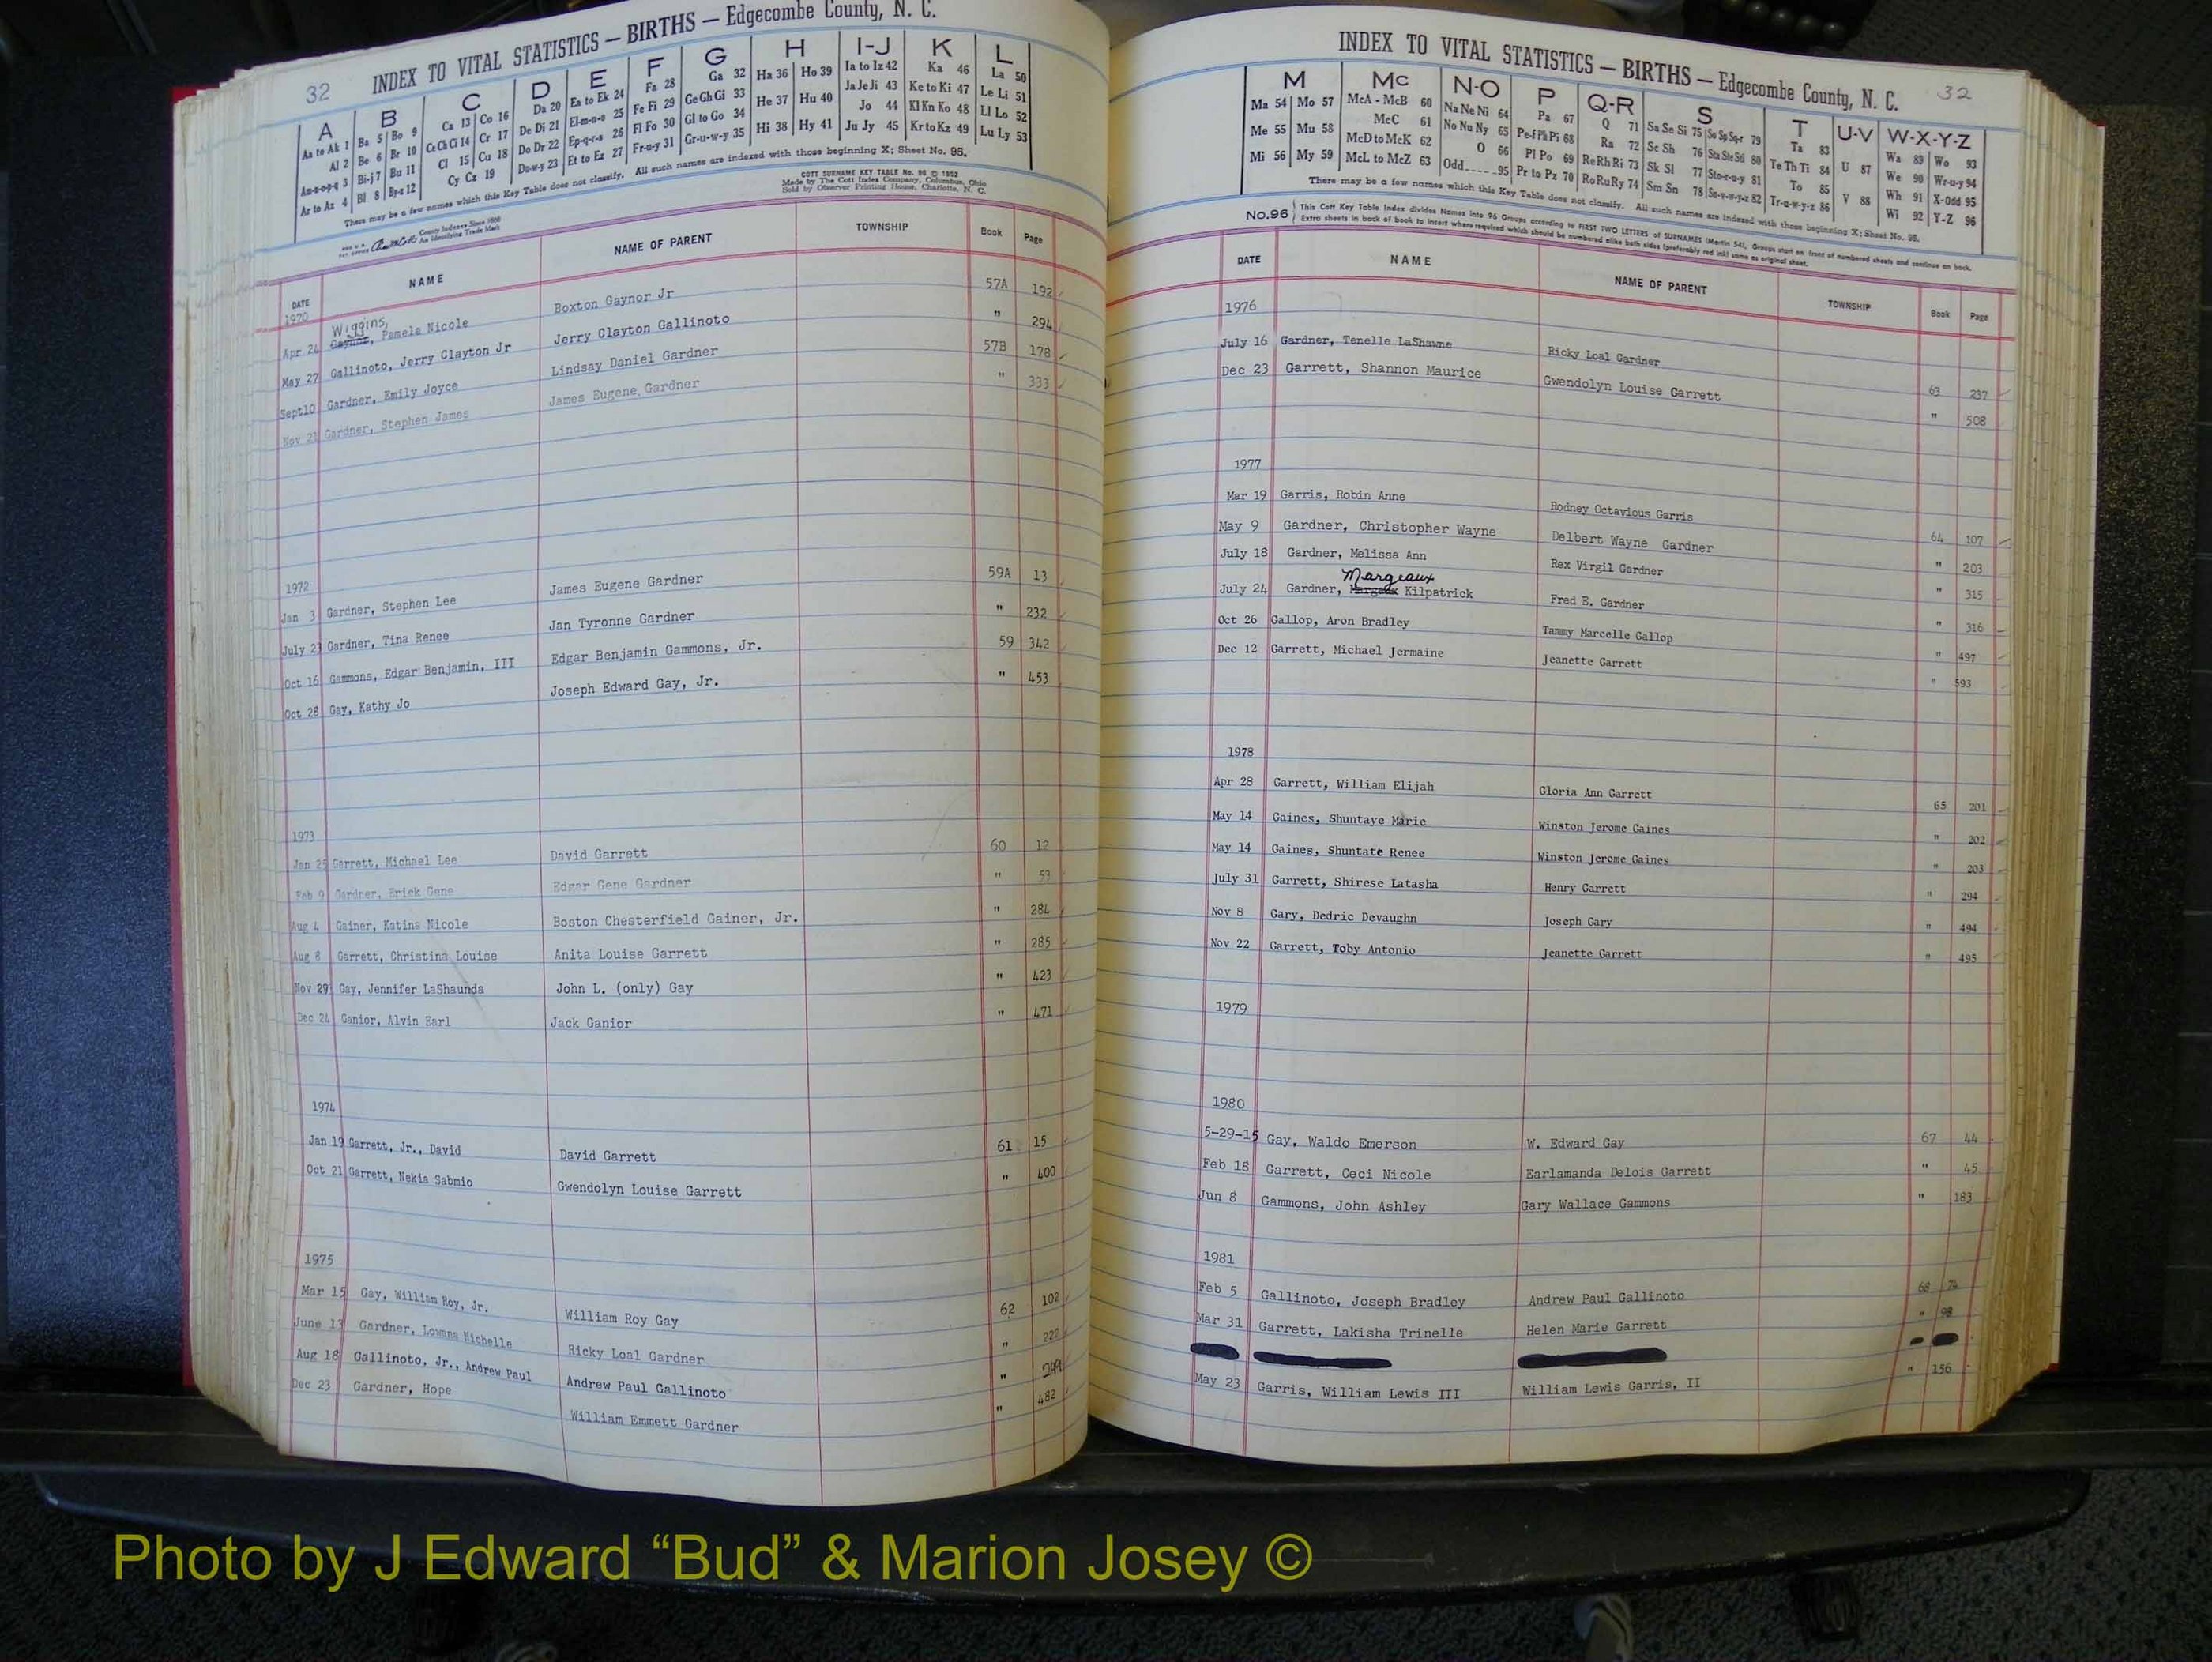 32 INDEX TO VITAL STATISTICS — BIRTHS — Edgecombe County, N. C.
A B C D E F G H I-J K L
Aa to Ak 1 Ba 5 Bo 9 Ca 13 Co 16 Da 20 Ea to Ek 24 Fa 28 Ga 32 Ha 36 Ho 39 Ia to Iz 42 Ka 46 La 50
Al 2 Be 6 Br 10 Ce Ch Ci 14 Cr 17 De Di 21 El-m-n-o 25 Fe Fi 29 Ge Gh Gi 33 He 37 Hu 40 Ja Je Ji 43 Ke to Ki 47 Le Li 51
Am-n-o-p-q 3 Bi-j 7 Bu 11 Cl 15 Cu 18 Do Dr 22 Ep-q-r-s 26 Fl Fo 30 Gl to Go 34 Hi 38 Hy 41 Jo 44 Kl Kn Ko 48 Ll Lo 52
Ar to Az 4 Bl 8 By-z 12 Cy Cz 19 Du-w-y 23 Et to Ez 27 Fr-u-y 31 Gr-u-w-y 35 Ju Jy 45 Kr to Kz 49 Lu Ly 53
There may be a few names which this Key Table does not classify. All such names are indexed with those beginning X; Sheet No. 95.
COTT SURNAME KEY TABLE No. 96 © 1952
Made by The Cott Index Company, Columbus, Ohio
Sold by Observer Printing House, Charlotte, N. C.
County Indexes Since 1888
An Identifying Trade Mark
DATE NAME NAME OF PARENT TOWNSHIP Book Page
1970
Wiggins,
Apr 24 Gaynor, Pamela Nicole Boxton Gaynor Jr 57A 192
May 27 Gallinoto, Jerry Clayton Jr Jerry Clayton Gallinoto " 294
Sept10 Gardner, Emily Joyce Lindsay Daniel Gardner 57B 178
Nov 21 Gardner, Stephen James James Eugene Gardner " 333
1972
Jan 3 Gardner, Stephen Lee James Eugene Gardner 59A 13
July 23 Gardner, Tina Renee Jan Tyronne Gardner " 232
Oct 16 Gammons, Edgar Benjamin, III Edgar Benjamin Gammons, Jr. 59 342
Oct 28 Gay, Kathy Jo Joseph Edward Gay, Jr. " 453
1973
Jan 25 Garrett, Michael Lee David Garrett 60 12
Feb 9 Gardner, Erick Gene Edgar Gene Gardner " 53
Aug 4 Gainer, Katina Nicole Boston Chesterfield Gainer, Jr. " 284
Aug 8 Garrett, Christina Louise Anita Louise Garrett " 285
Nov 29 Gay, Jennifer LaShaunda John L. (only) Gay " 423
Dec 24 Ganior, Alvin Earl Jack Ganior " 471
1974
Jan 19 Garrett, Jr., David David Garrett 61 15
Oct 21 Garrett, Nekia Sabmio Gwendolyn Louise Garrett " 400
1975
Mar 15 Gay, William Roy, Jr. William Roy Gay 62 102
June 13 Gardner, Lowana Michelle Ricky Loal Gardner " 222
Aug 18 Gallinoto, Jr., Andrew Paul Andrew Paul Gallinoto " 249
Dec 23 Gardner, Hope William Emmett Gardner " 482
INDEX TO VITAL STATISTICS — BIRTHS — Edgecombe County, N. C. 32
M Mc N-O P Q-R S T U-V W-X-Y-Z
Ma 54 Mo 57 McA - McB 60 Na Ne Ni 64 Pa 67 Q 71 Sa Se Si 75 So Sp Sq-r 79 Ta 83 U 87 Wa 89 Wo 93
Me 55 Mu 58 McC 61 No Nu Ny 65 Pe-f Ph Pi 68 Ra 72 Sc Sh 76 Sta Ste Sti 80 Te Th Ti 84 V 88 We 90 Wr-u-y 94
Mi 56 My 59 McD to McK 62 O 66 Pl Po 69 Re Rh Ri 73 Sk Sl 77 Sto-r-u-y 81 To 85 Wh 91 X-Odd 95
McL to McZ 63 Odd 95 Pr to Pz 70 Ro Ru Ry 74 Sm Sn 78 Su-v-w-y-z 82 Tr-u-w-y-z 86 Wi 92 Y-Z 96
There may be a few names which this Key Table does not classify. All such names are indexed with those beginning X; Sheet No. 95.
No. 96 This Cott Key Table Index divides Names into 96 Groups according to FIRST TWO LETTERS of SURNAMES (Martin 54). Groups start on front of numbered sheets and continue on back.
Extra sheets in back of book to insert where required which should be numbered alike both sides (preferably red ink) same as original sheet.
DATE NAME NAME OF PARENT TOWNSHIP Book Page
1976
July 16 Gardner, Tenelle LaShawne Ricky Loal Gardner 63 237
Dec 23 Garrett, Shannon Maurice Gwendolyn Louise Garrett " 508
1977
Mar 19 Garris, Robin Anne Rodney Octavious Garris 64 107
May 9 Gardner, Christopher Wayne Delbert Wayne Gardner " 203
July 18 Gardner, Melissa Ann Rex Virgil Gardner " 315
Margeaux
July 24 Gardner, Kilpatrick Fred E. Gardner " 316
Oct 26 Gallop, Aron Bradley Tammy Marcelle Gallop " 497
Dec 12 Garrett, Michael Jermaine Jeanette Garrett " 593
1978
Apr 28 Garrett, William Elijah Gloria Ann Garrett 65 201
May 14 Gaines, Shuntaye Marie Winston Jerome Gaines " 202
May 14 Gaines, Shuntate Renee Winston Jerome Gaines " 203
July 31 Garrett, Shirese Latasha Henry Garrett " 294
Nov 8 Gary, Dedric Devaughn Joseph Gary " 494
Nov 22 Garrett, Toby Antonio Jeanette Garrett " 495
1979
1980
5-29-15 Gay, Waldo Emerson W. Edward Gay 67 44
Feb 18 Garrett, Ceci Nicole Earlamanda Delois Garrett " 45
Jun 8 Gammons, John Ashley Gary Wallace Gammons " 183
1981
Feb 5 Gallinoto, Joseph Bradley Andrew Paul Gallinoto 68 74
Mar 31 Garrett, Lakisha Trinelle Helen Marie Garrett " 98
May 23 Garris, William Lewis III William Lewis Garris, II " 156
Photo by J Edward “Bud” & Marion Josey ©